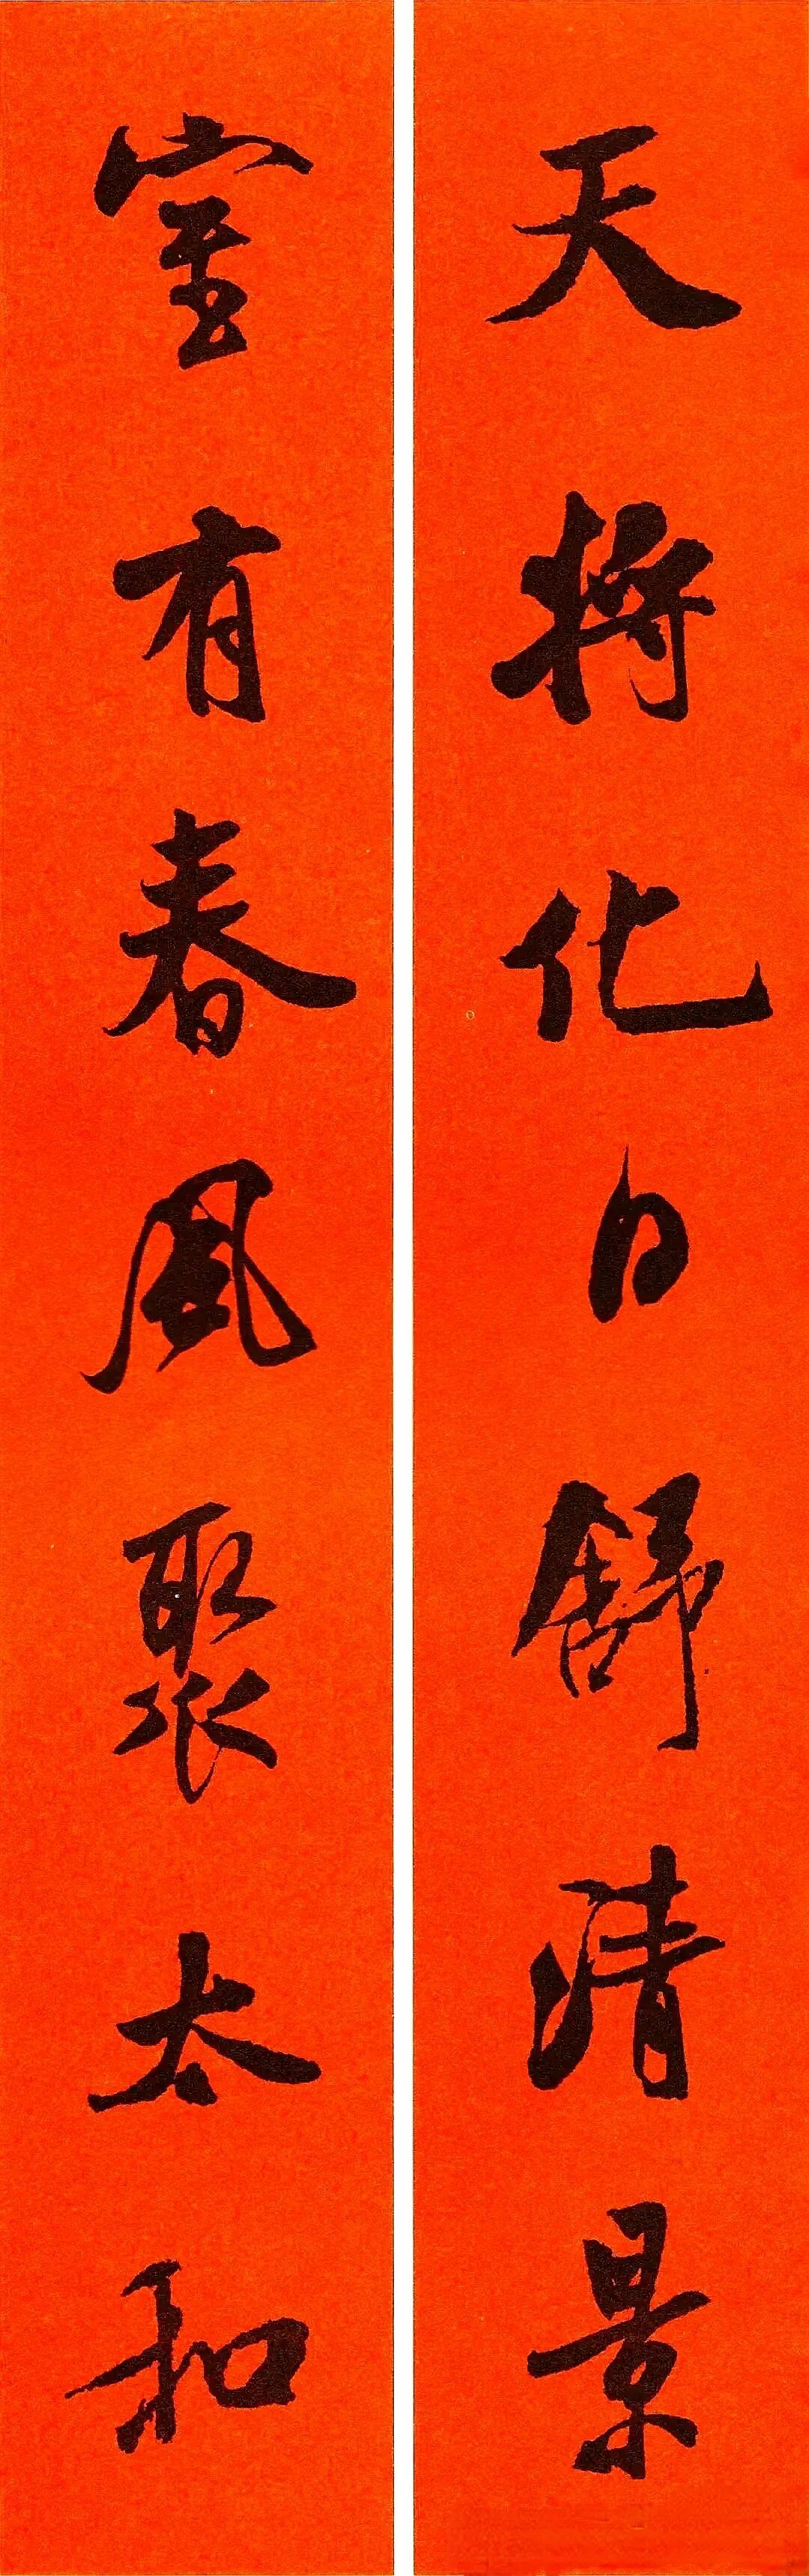 天将化日舒清景
室有春風聚太和